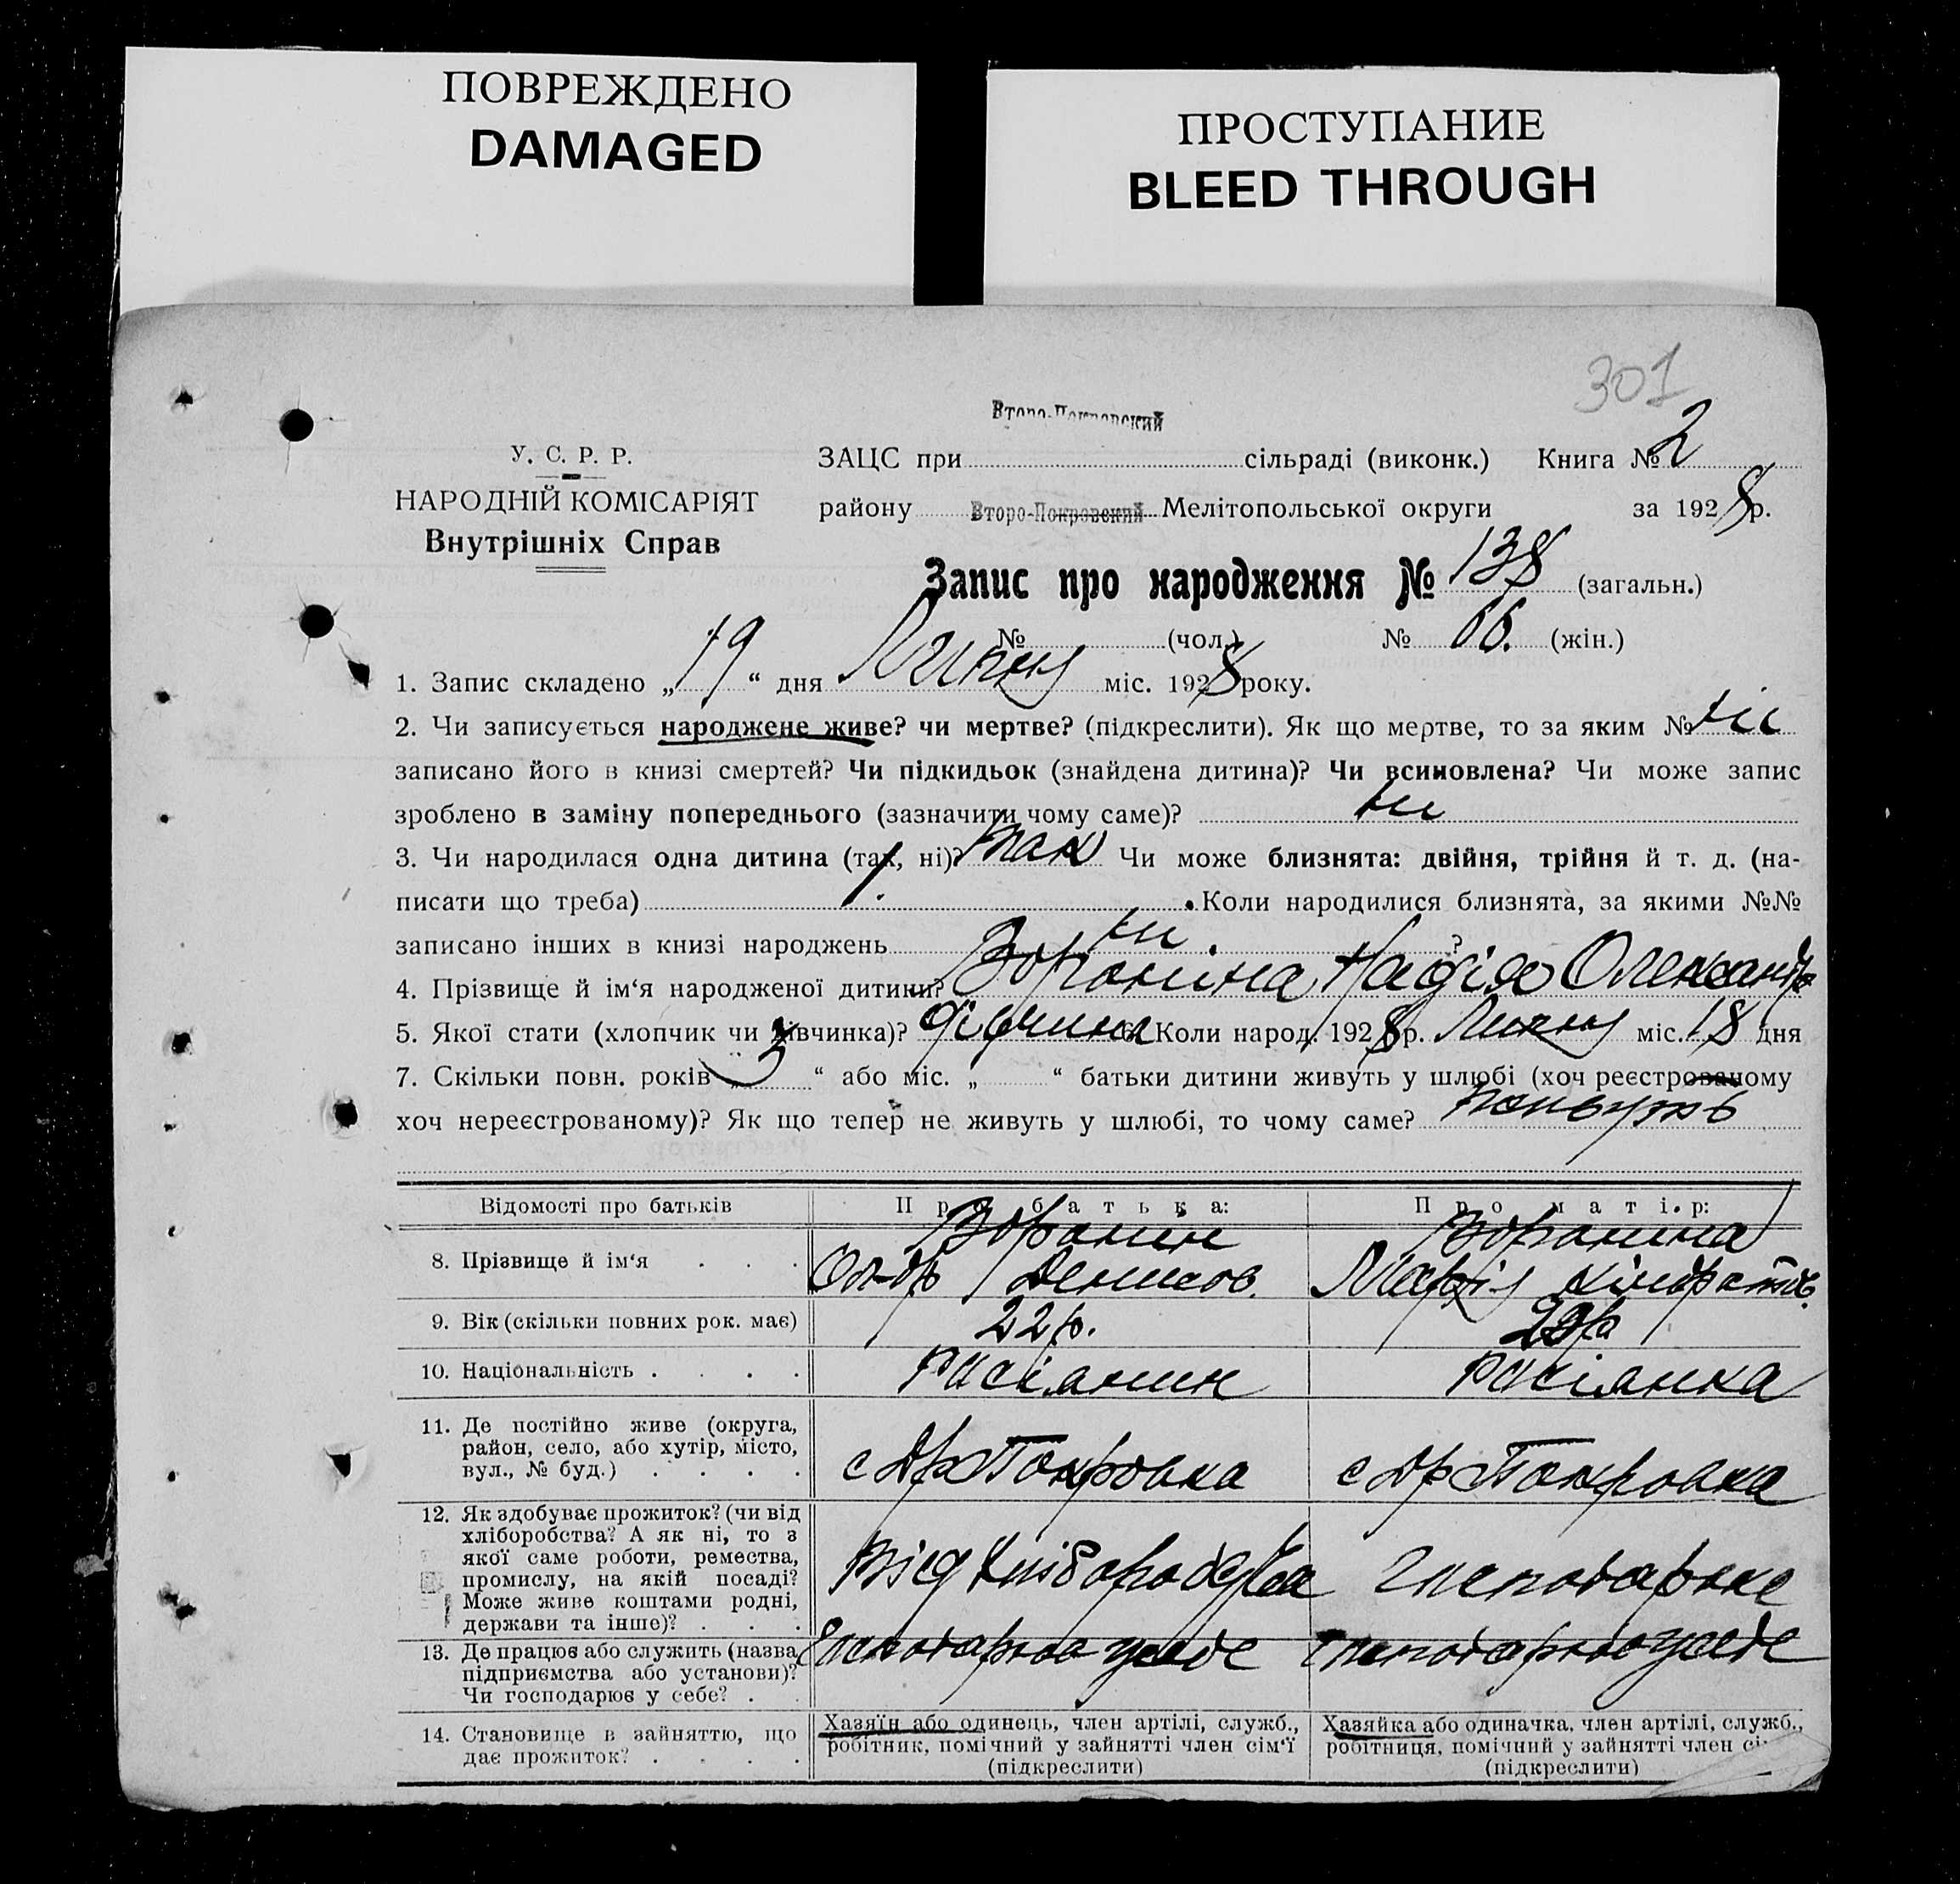 ПОВРЕЖДЕНО
DAMAGED
ПРОСТУПАНИЕ
BLEED THROUGH
301
Второ-Покровский
У. С. Р. Р.
НАРОДНІЙ КОМІСАРІЯТ
Внутрішніх Справ
ЗАЦС при сільраді (виконк.) Книга № 2
району Второ-Покровский Мелітопольської округи за 1928 р.
Запис про народження № 138 (загальн.)
№ (чол.) № 66. (жін.)
1. Запис складено „19“ дня Липня міс. 1928 року.
2. Чи записується народжене живе? чи мертве? (підкреслити). Як що мертве, то за яким № ні
записано його в книзі смертей? Чи підкидьок (знайдена дитина)? Чи всиновлена? Чи може запис
зроблено в заміну попереднього (зазначити чому саме)? ні
3. Чи народилася одна дитина (так, ні)? так Чи може близнята: двійня, трійня й т. д. (на-
писати що треба) 1. Коли народилися близнята, за якими №№
записано інших в книзі народжень ні. ?
4. Прізвище й ім‘я народженої дитини? Вороніна Надія Олександр
5. Якої стати (хлопчик чи дівчинка)? дівчина 6. Коли народ. 1928 р. Липня міс. 18 дня
7. Скільки повн. років „3“ або міс. „ “ батьки дитини живуть у шлюбі (хоч реєстрованому
хоч нереєстрованому)? Як що тепер не живуть у шлюбі, то чому саме?
Відомості про батьків Про батька: Про матір:
8. Прізвище й ім‘я . . . Воронін Воронина
Ол-др Денисов. Марія Кіндратів.
9. Вік (скільки повних рок. має) 22 р. 22 р
10. Національність . . . . росіянин росіянка
11. Де постійно живе (округа,
район, село, або хутір, місто,
вул., № буд.) . . . . с Др Покровка с Др Покровка
12. Як здобуває прожиток? (чи від
хліборобства? А як ні, то з
якої саме роботи, ремества,
промислу, на якій посаді?
Може живе коштами родні,
держави та інше)? . . . Від хліборобства господарює
13. Де працює або служить (назва
підприємства або установи)?
Чи господарює у себе? . . господарює у себе господарює у себе
14. Становище в зайняттю, що
дає прожиток? . . . .
Хазяїн або одинець, член артілі, служб.,
робітник, помічний у зайнятті член сім‘ї
(підкреслити)
Хазяйка або одиначка, член артілі, служб.,
робітниця, помічний у зайнятті член сі
(підкреслити)